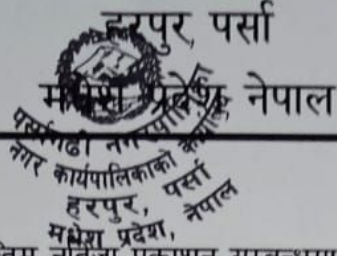 हरपुर, पर्सा
मधेश प्रदेश, नेपाल
पर्सागढी नगरपालिका
नगर कार्यपालिकाको
हरपुर, पर्सा
मधेश प्रदेश, नेपाल